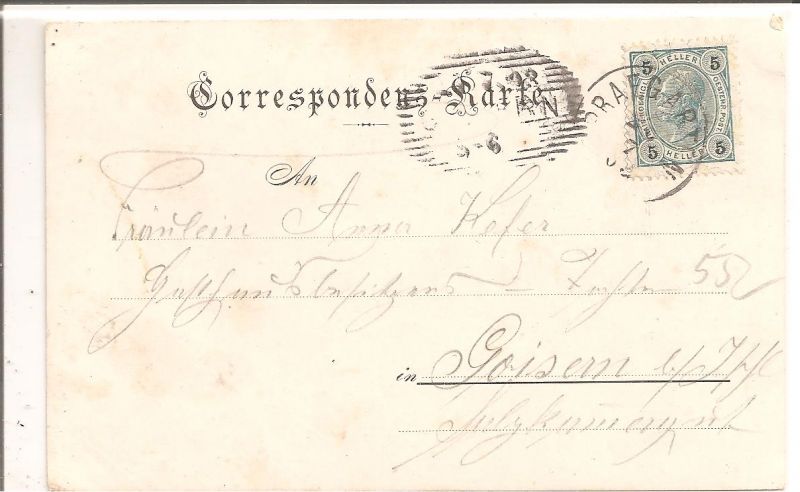 Correspondenz-Karte
5 HELLER 5
5 HELLER 5
5-6
An
Fräulein Anna Kefer
Gasthausbesitzers - Tochter 52
in Goisern b/Ischl
Salzkammergut